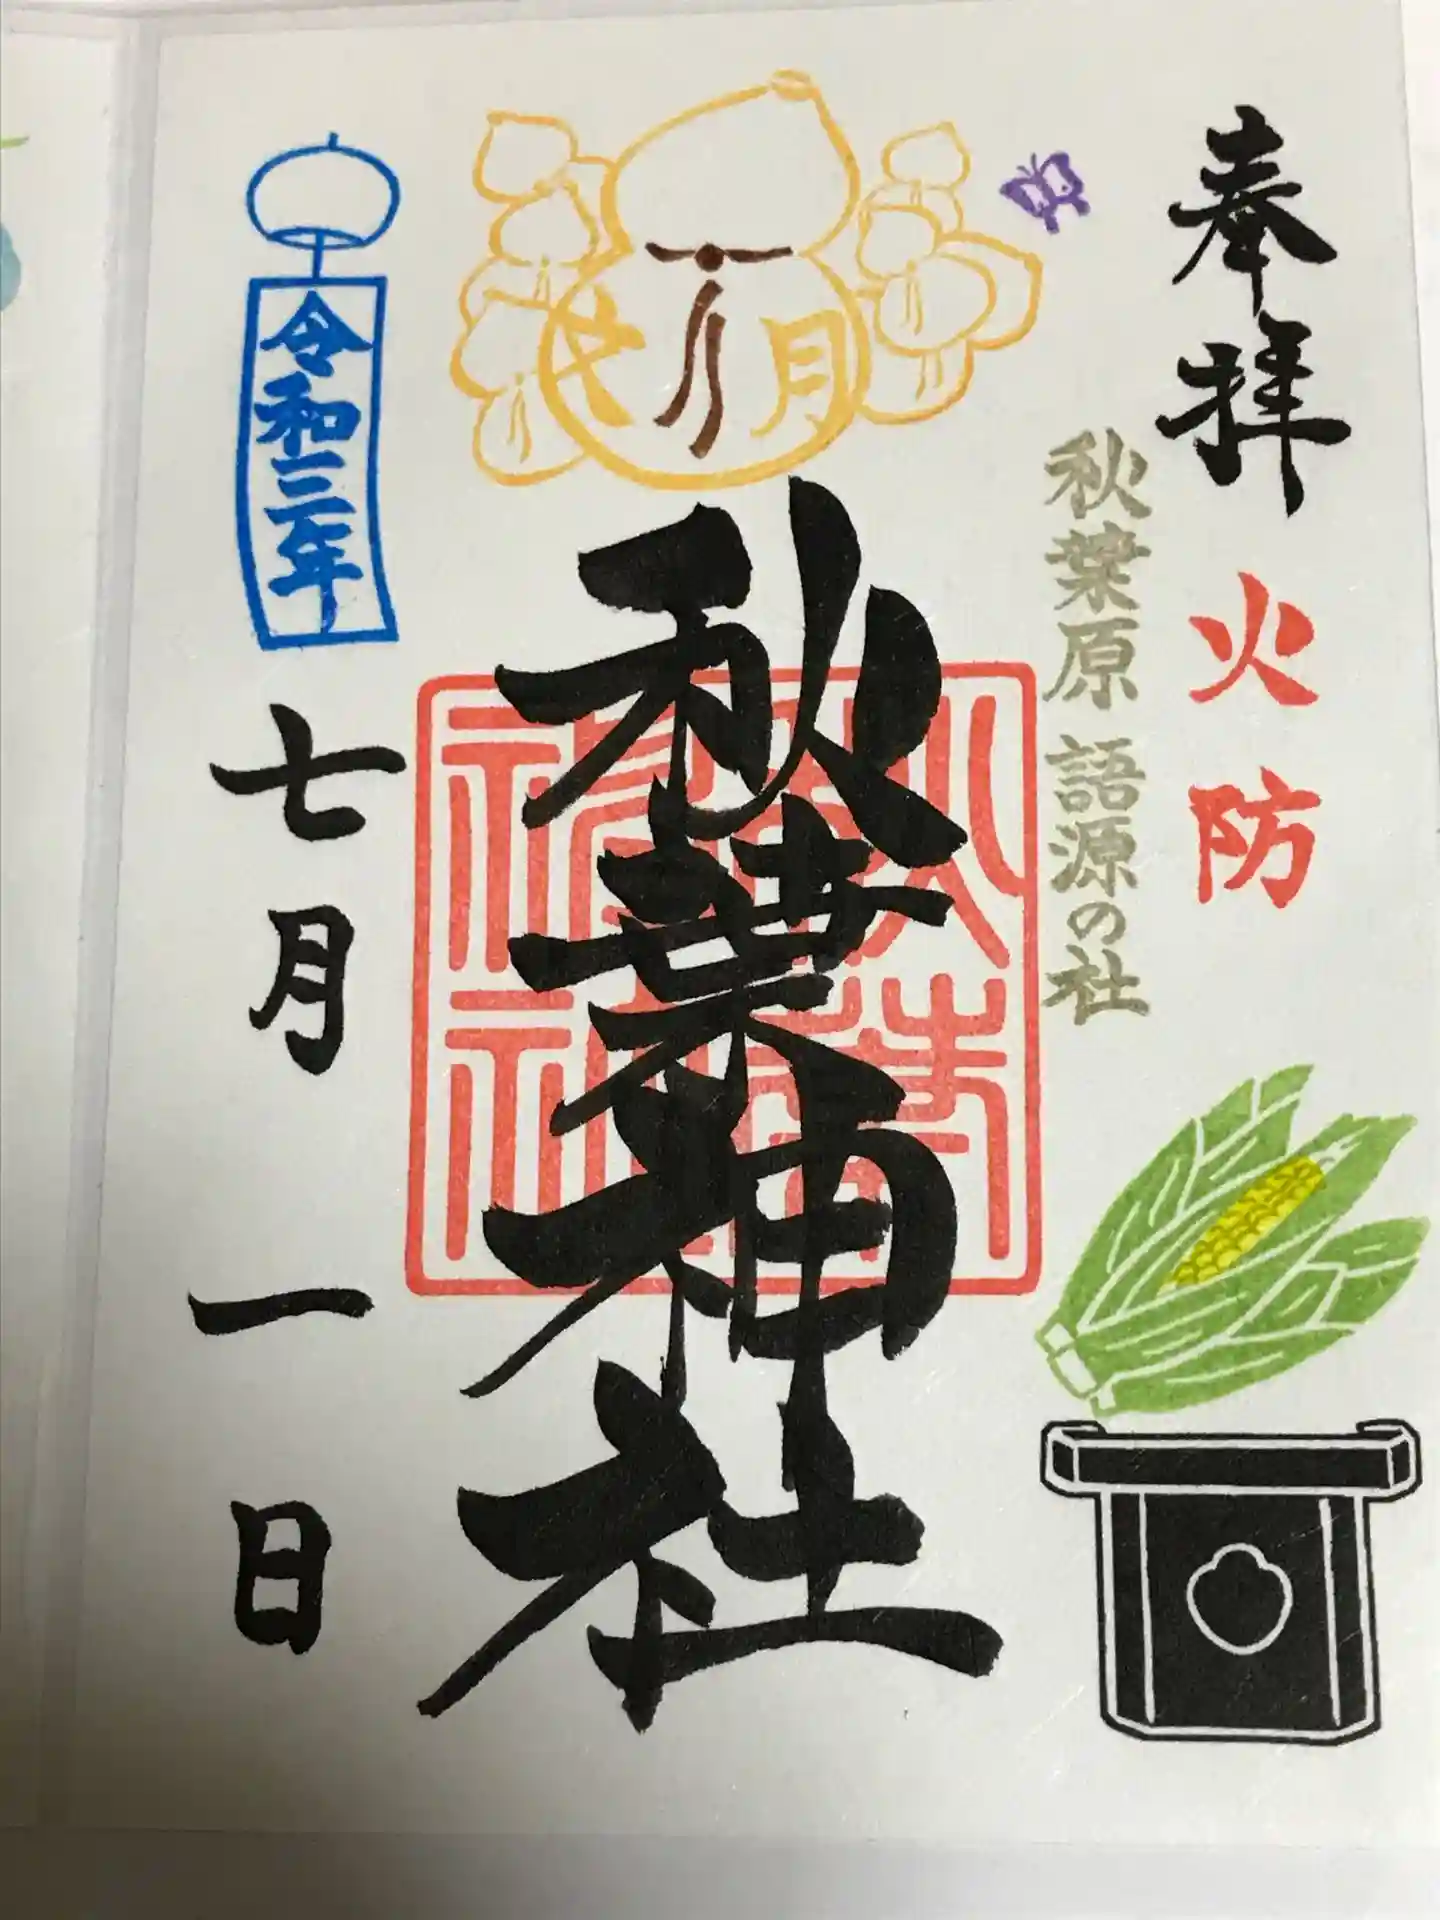 奉拝
火防
秋葉原 語源の社
七月
秋葉神社
秋葉神社
令和三年
七月一日